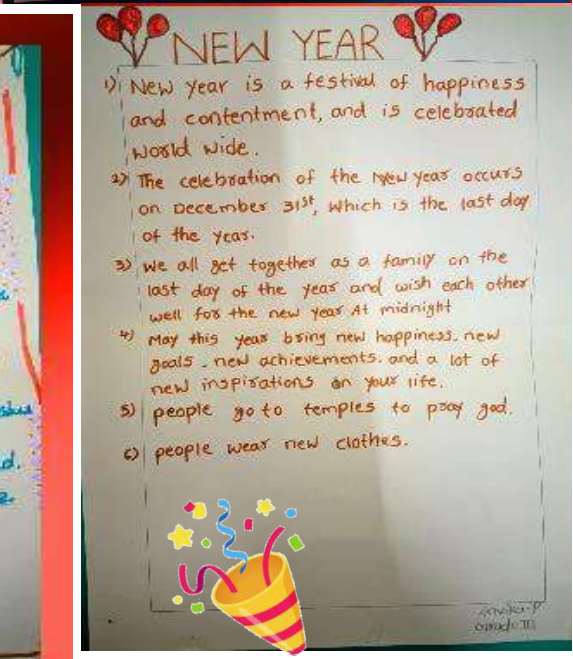 NEW YEAR
1) New year is a festival of happiness
and contentment, and is celebrated
world wide.
2) The celebration of the New year occurs
on December 31st, which is the last day
of the year.
3) we all get together as a family on the
last day of the year and wish each other
well for the new year At midnight
4) May this year bring new happiness. new
goals. new achievements. and a lot of
new inspirations in your life.
5) people go to temples to pray god.
6) people wear new clothes.